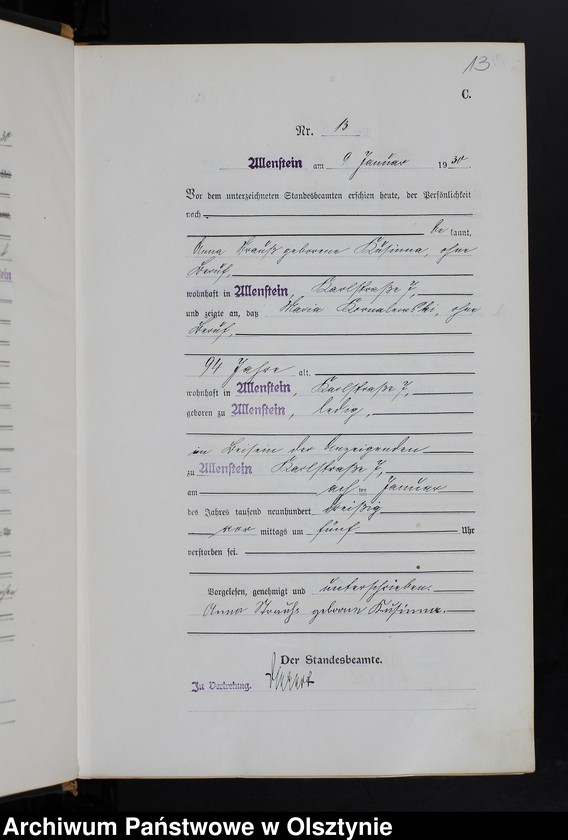 13
C.
Nr. 13
Allenstein am 9 Januar 1930.
Vor dem unterzeichneten Standesbeamten erschien heute, der Persönlichkeit
nach
be kannt,
Anna Strauß geborene Kusinna, ohne
Beruf,
wohnhaft in Allenstein, Karlstraße 7,
und zeigte an, daß Maria Kornalewski, ohne
Beruf,
94 Jahre alt.
wohnhaft in Allenstein, Karlstraße 7,
geboren zu Allenstein, ledig,
in Beisein der Anzeigenden
zu Allenstein Karlstraße 7,
am ach ten Januar
des Jahres tausend neunhundert dreißig
vor mittags um fünf Uhr
verstorben sei.
Vorgelesen, genehmigt und unterschrieben.
Anna Strauß geborene Kusinna.
Der Standesbeamte.
In Vertretung.
Archiwum Państwowe w Olsztynie